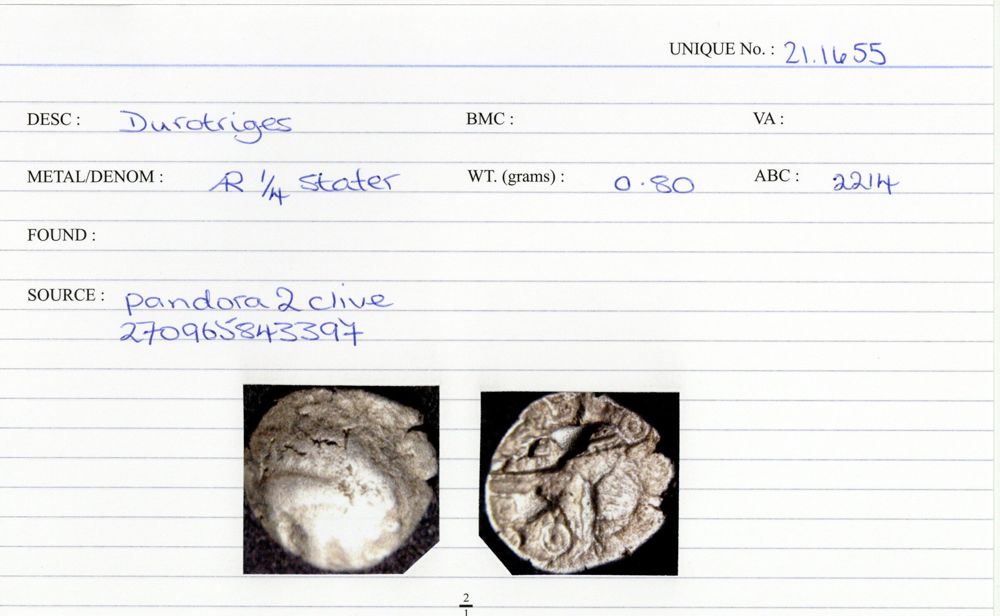 UNIQUE No. : 21.1655
DESC : Durotriges BMC : VA :
METAL/DENOM : AR 1/4 Stater WT. (grams) : 0.80 ABC : 2214
FOUND :
SOURCE : pandora2clive
270965843397
2
1